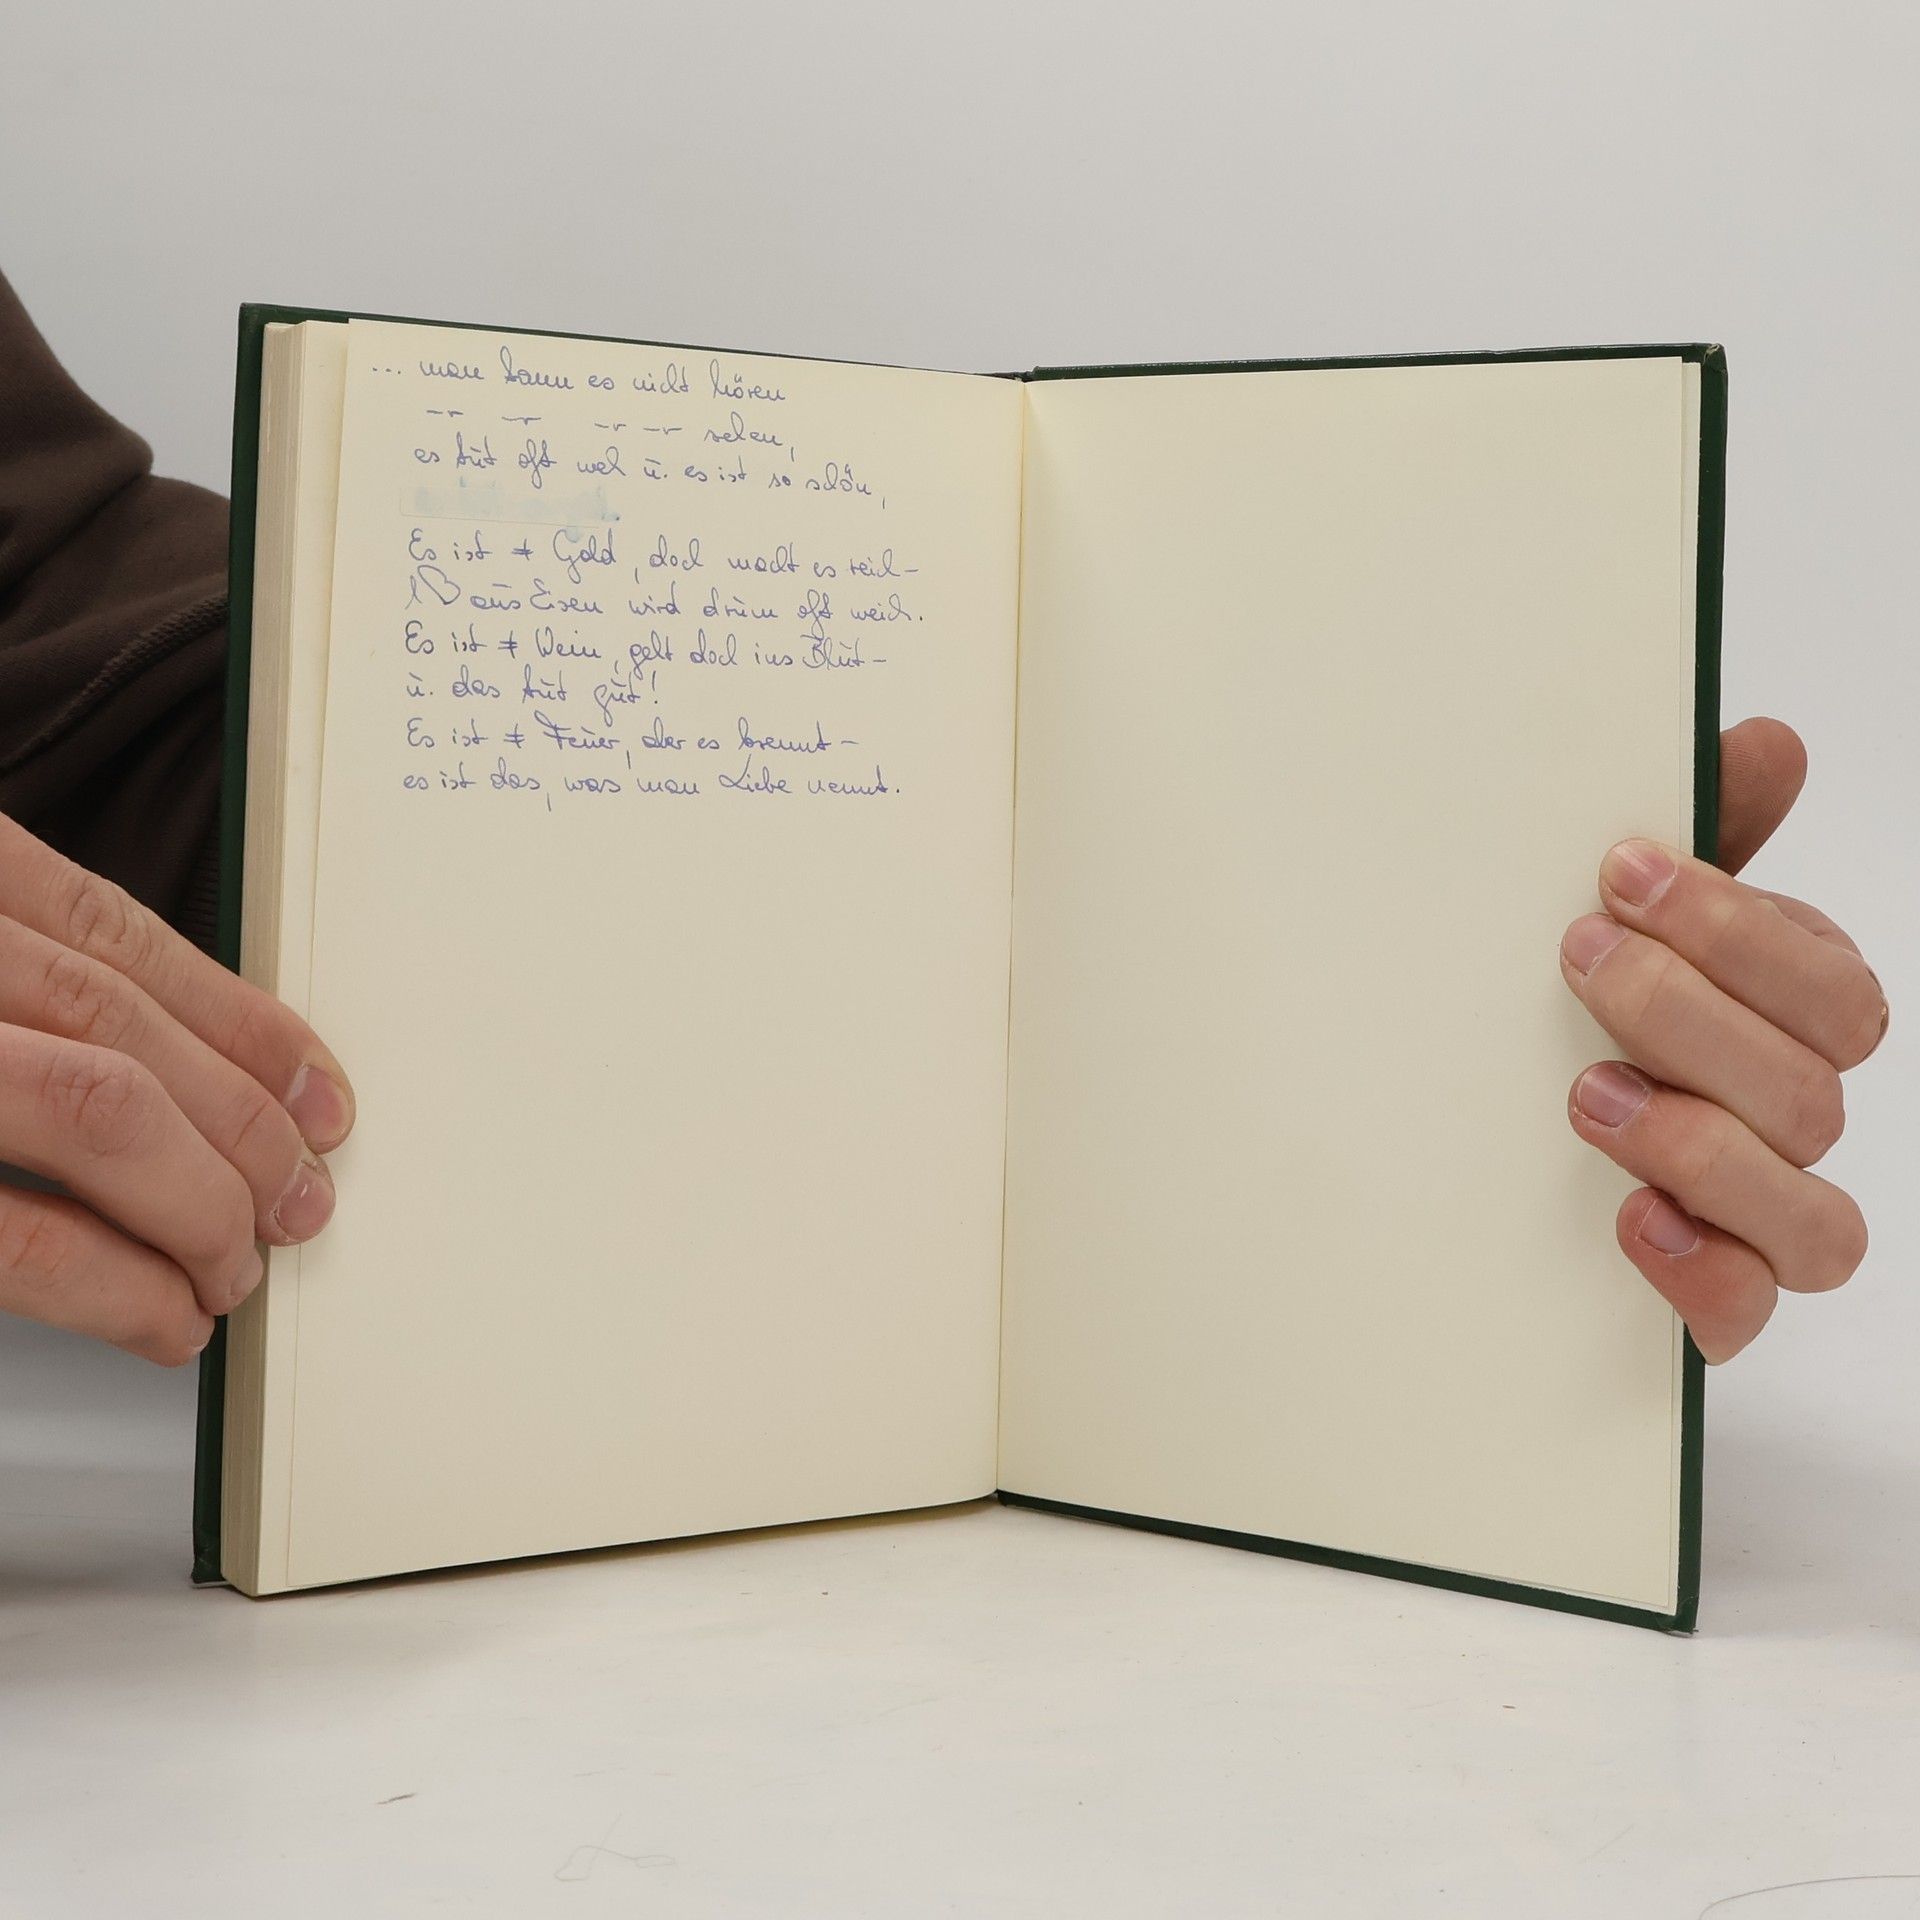 ... man kann es nicht hören
-"- -"- -"- -"- sehen,
es tut oft weh u. es ist so schön,
Es ist ≠ Gold, doch macht es reich -
1 ♡ aus Eisen wird drum oft weich.
Es ist ≠ Wein, geht doch ins Blut -
u. das tut gut!
Es ist ≠ Feuer, aber es brennt -
es ist das, was man Liebe nennt.